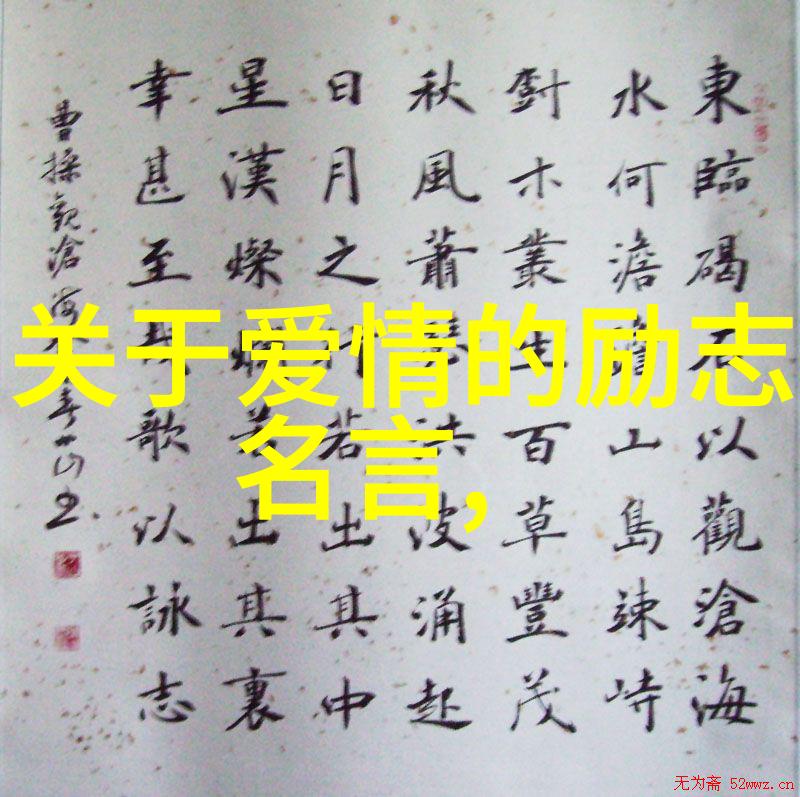 東臨碣石以觀滄海
水何澹澹山島竦峙
木叢生百草豐茂
秋風蕭瑟洪波涌起
日月之行若出其中
星漢燦爛若出其裏
幸甚至哉歌以詠志
曹操觀滄海
关于爱情的励志
名言,
无为斋 52wwz.cn